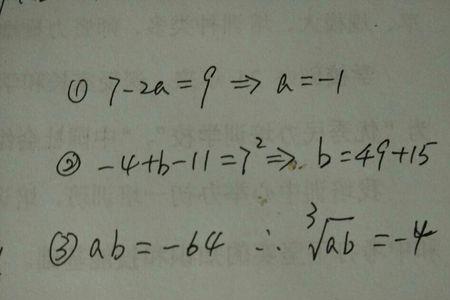 ① 7-2a=9 ⇒ a=-1
② -4+b-11=7² ⇒ b=49+15
③ ab=-64 ∴ ³√ab =-4